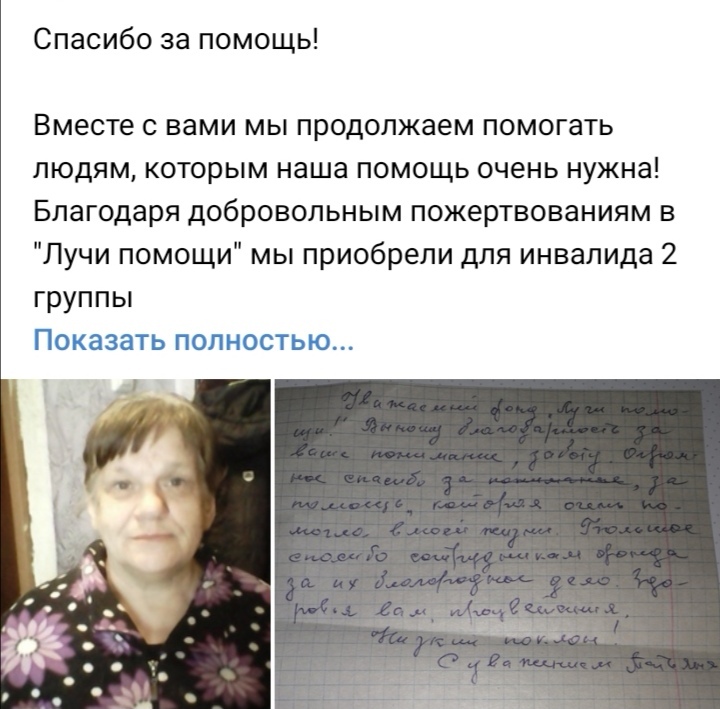 Спасибо за помощь!
Вместе с вами мы продолжаем помогать
людям, которым наша помощь очень нужна!
Благодаря добровольным пожертвованиям в
"Лучи помощи" мы приобрели для инвалида 2
группы
Показать полностью...
Уважаемый фонд „Лучи помо-
щи!" Выношу благодарность за
ваше понимание, заботу. Огром
ное спасибо за понимание, за
помощь, которая очень по-
могла в моей жизни. Большое
спасибо сотрудникам фонда
за их благородное дело. Здо-
ровья вам, процветания.
Низкий поклон!
С уважением Татьяна